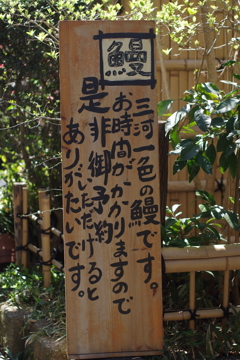 鰻
三河一色の鰻です。
お時間がかかりますので
是非御予約
いただけると
ありがたいです。